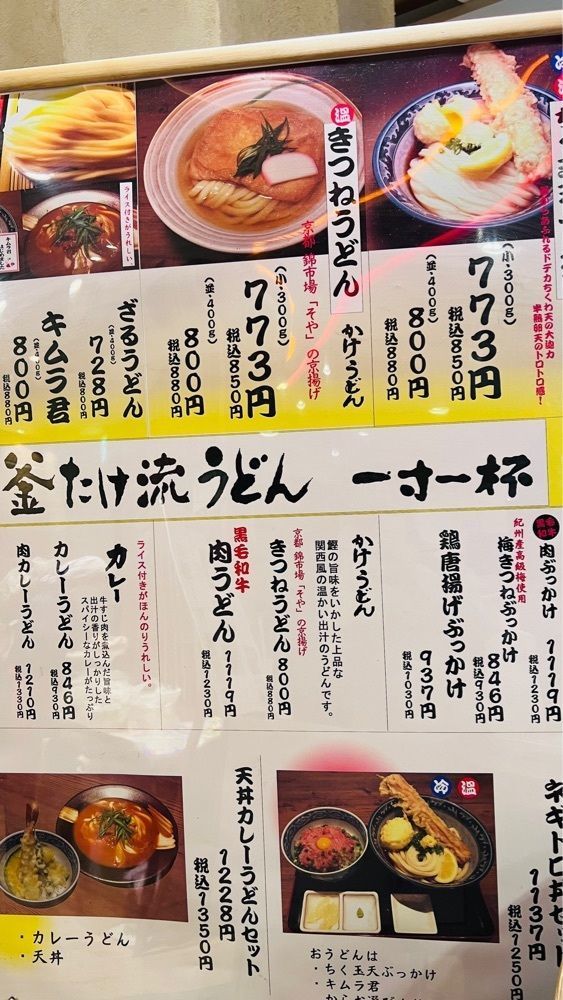 冷
温
あふれるドデカちくわ天の大迫力
半熟卵天のトロトロ感！
(小・300g)
773円
税込850円
(並・400g)
800円
税込880円
温
きつねうどん
かけうどん
京都 錦市場「そや」の京揚げ
(小・300g)
773円
税込850円
(並・400g)
800円
税込880円
ライス付きがうれしい。
キムラ君
ざるうどん
(並・400g)
728円
税込800円
キムラ君
(並・400g)
800円
税込880円
釜たけ流うどん 一寸一杯
黒毛和牛
肉ぶっかけ 1119円
税込1230円
紀州産高級梅使用
梅きつねぶっかけ
846円
税込930円
鶏唐揚げぶっかけ
937円
税込1030円
かけうどん
鰹の旨味をいかした上品な
関西風の温かい出汁のうどんです。
京都 錦市場「そや」の京揚げ
きつねうどん 800円
税込880円
黒毛和牛
肉うどん 1119円
税込1230円
ライス付きがほんのりうれしい。
カレー
牛すじ肉を煮込んだ旨味と
出汁の香りがしっかりした
スパイシーなカレーがたっぷり
カレーうどん 846円
税込930円
肉カレーうどん 1210円
税込1330円
ネギトロ丼セット
1137円
税込1250円
冷
温
おうどんは
・ちく玉天ぶっかけ
・キムラ君
天丼カレーうどんセット
1228円
税込1350円
・カレーうどん
・天丼